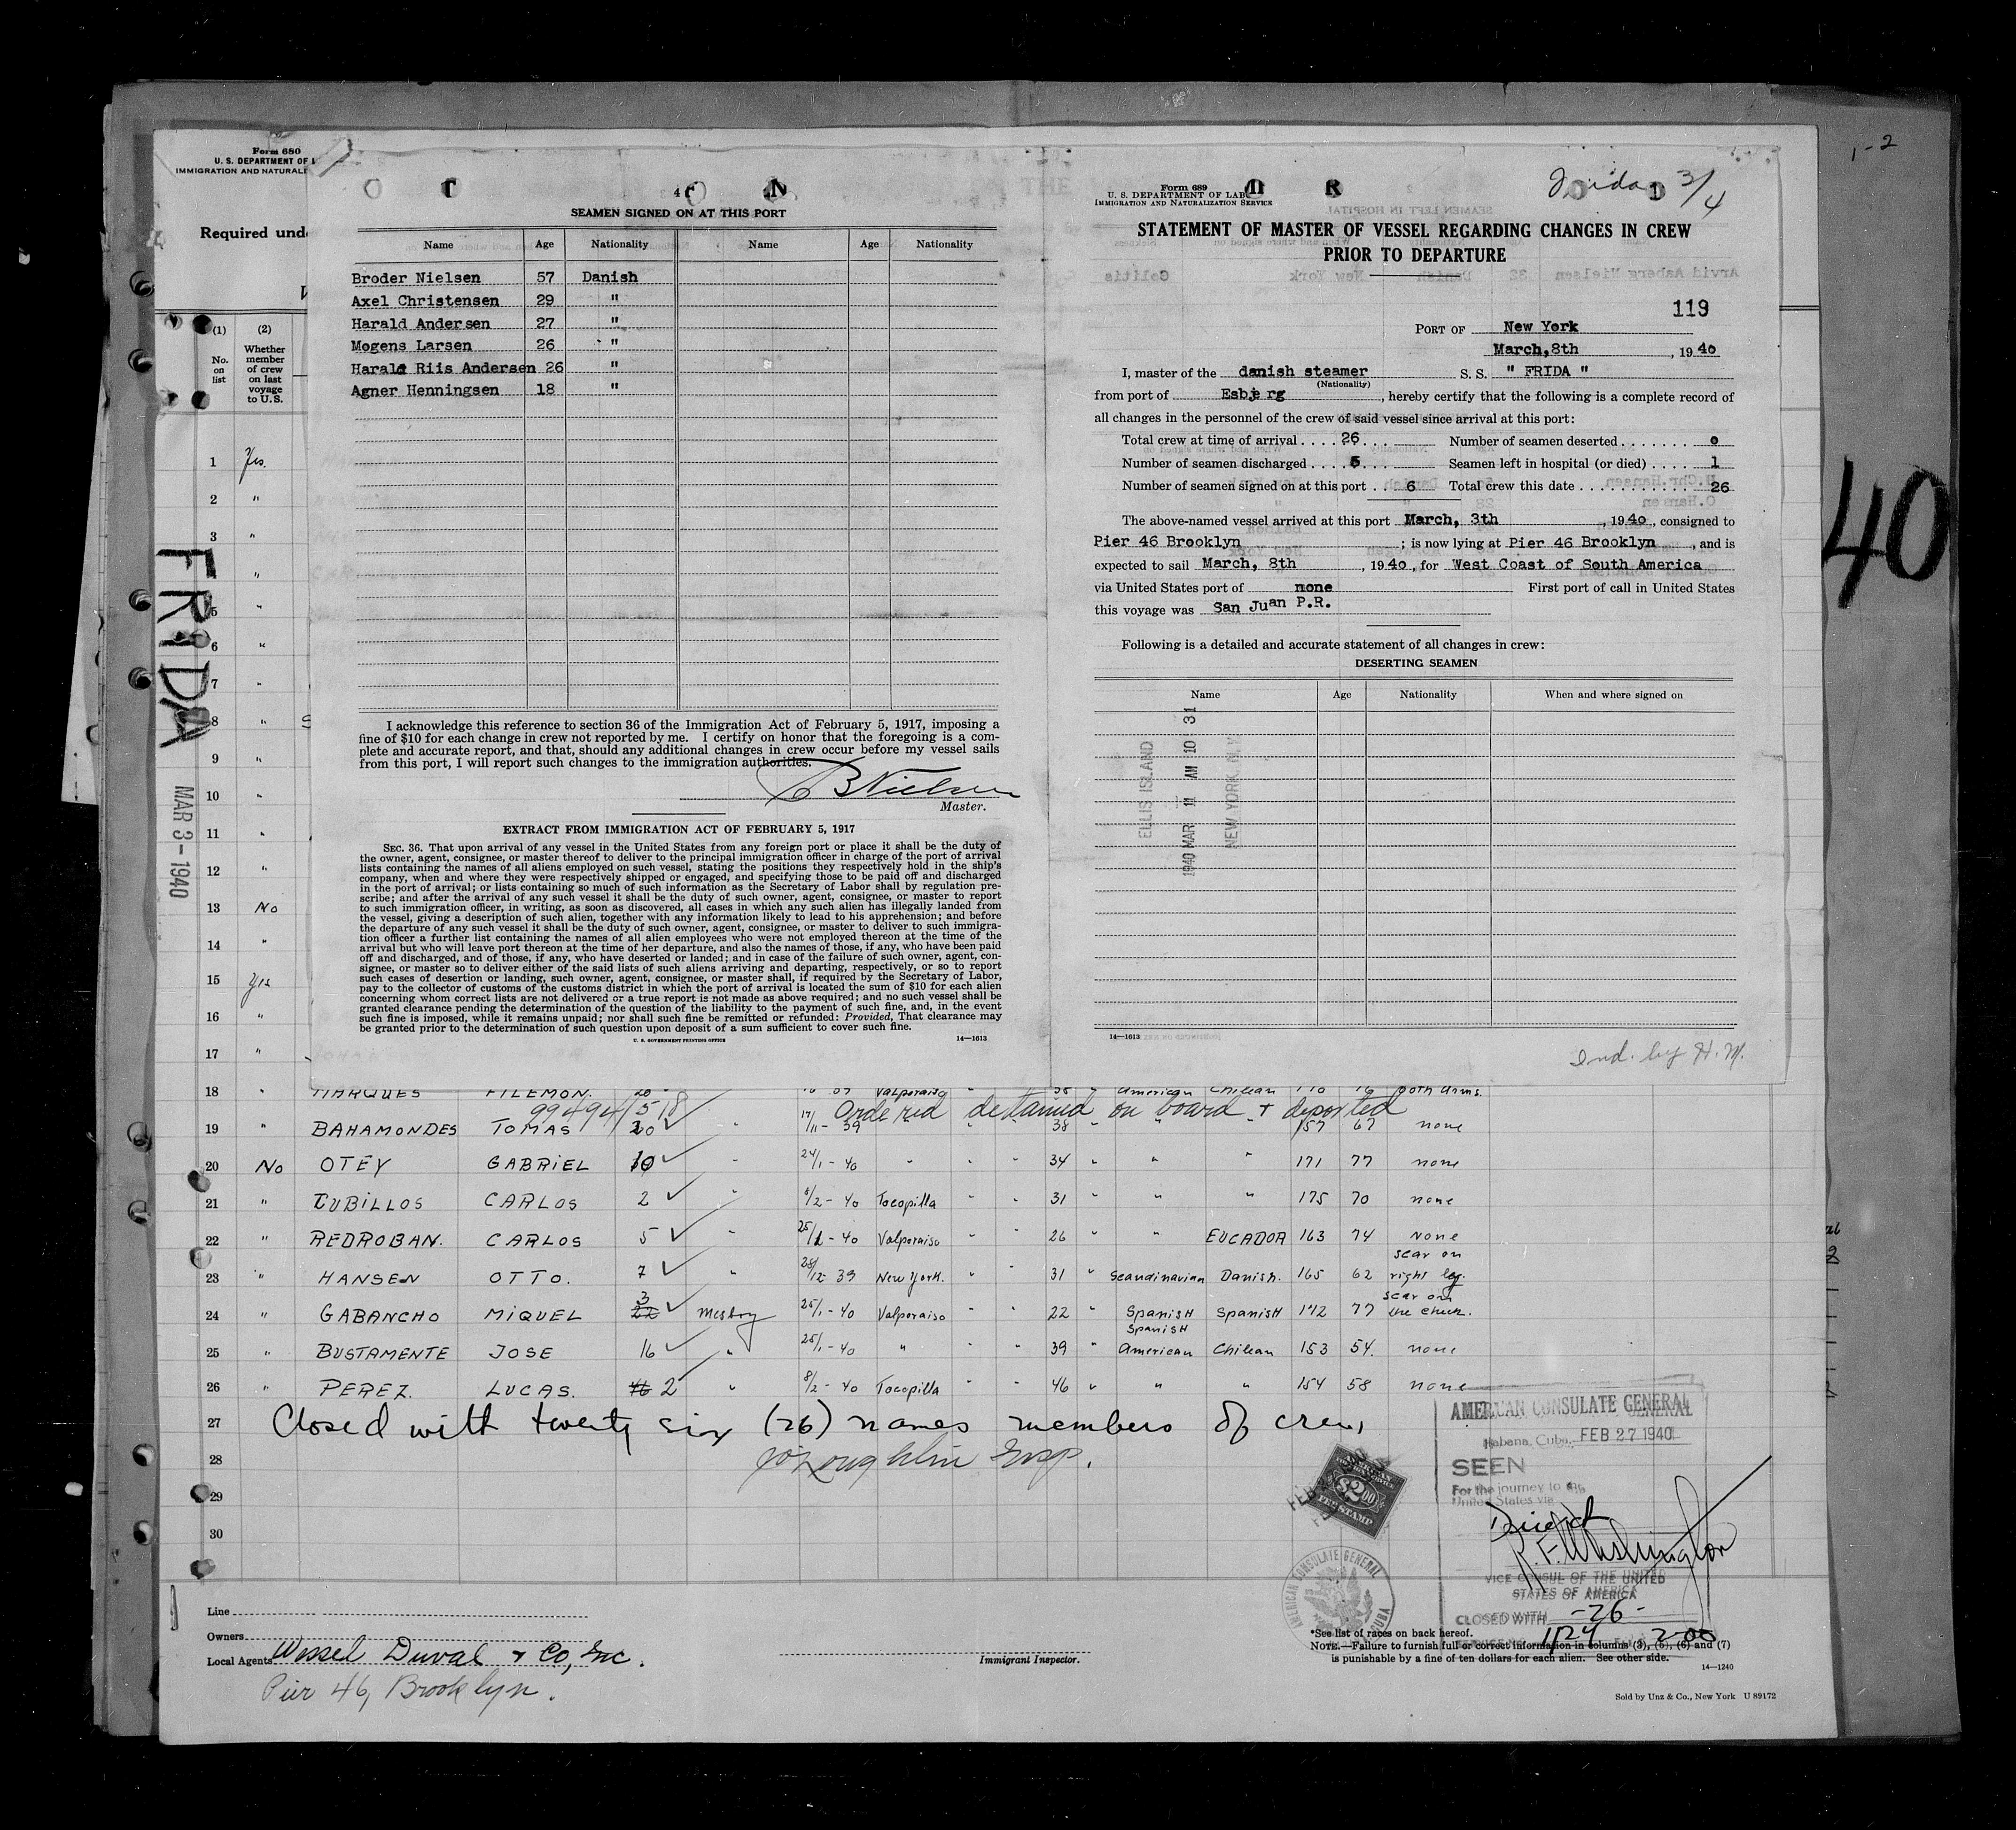 1-2
40
Form 680
U. S. DEPARTMENT OF L
IMMIGRATION AND NATURALI
Required unde
(1) (2)
No. on list
Whether member of crew on last voyage to U.S.
FRIDA
MAR 3 - 1940
1 Yes.
2 "
3 "
"
5 "
6 "
7 "
8 " S
9 "
10 "
11 "
12 "
13 No
14 "
15 Yes
16 "
17 "
4
SEAMEN SIGNED ON AT THIS PORT
Name Age Nationality Name Age Nationality
Broder Nielsen 57 Danish
Axel Christensen 29 "
Harald Andersen 27 "
Mogens Larsen 26 "
Harald Riis Andersen 26 "
Agner Henningsen 18 "
I acknowledge this reference to section 36 of the Immigration Act of February 5, 1917, imposing a
fine of $10 for each change in crew not reported by me. I certify on honor that the foregoing is a com-
plete and accurate report, and that, should any additional changes in crew occur before my vessel sails
from this port, I will report such changes to the immigration authorities.
B Nielsen
Master.
EXTRACT FROM IMMIGRATION ACT OF FEBRUARY 5, 1917
SEC. 36. That upon arrival of any vessel in the United States from any foreign port or place it shall be the duty of
the owner, agent, consignee, or master thereof to deliver to the principal immigration officer in charge of the port of arrival
lists containing the names of all aliens employed on such vessel, stating the positions they respectively hold in the ship's
company, when and where they were respectively shipped or engaged, and specifying those to be paid off and discharged
in the port of arrival; or lists containing so much of such information as the Secretary of Labor shall by regulation pre-
scribe; and after the arrival of any such vessel it shall be the duty of such owner, agent, consignee, or master to report
to such immigration officer, in writing, as soon as discovered, all cases in which any such alien has illegally landed from
the vessel, giving a description of such alien, together with any information likely to lead to his apprehension; and before
the departure of any such vessel it shall be the duty of such owner, agent, consignee, or master to deliver to such immigra-
tion officer a further list containing the names of all alien employees who were not employed thereon at the time of the
arrival but who will leave port thereon at the time of her departure, and also the names of those, if any, who have been paid
off and discharged, and of those, if any, who have deserted or landed; and in case of the failure of such owner, agent, con-
signee, or master so to deliver either of the said lists of such aliens arriving and departing, respectively, or so to report
such cases of desertion or landing, such owner, agent, consignee, or master shall, if required by the Secretary of Labor,
pay to the collector of customs of the customs district in which the port of arrival is located the sum of $10 for each alien
concerning whom correct lists are not delivered or a true report is not made as above required; and no such vessel shall be
granted clearance pending the determination of the question of the liability to the payment of such fine, and, in the event
such fine is imposed, while it remains unpaid; nor shall such fine be remitted or refunded: Provided, That clearance may
be granted prior to the determination of such question upon deposit of a sum sufficient to cover such fine.
U. S. GOVERNMENT PRINTING OFFICE 14—1613
Form 689
U. S. DEPARTMENT OF LABOR
IMMIGRATION AND NATURALIZATION SERVICE
Frida 3/4
STATEMENT OF MASTER OF VESSEL REGARDING CHANGES IN CREW
PRIOR TO DEPARTURE
119
PORT OF New York
March, 8th, 1940
I, master of the danish steamer S. S. " FRIDA "
(Nationality)
from port of Esbjerg, hereby certify that the following is a complete record of
all changes in the personnel of the crew of said vessel since arrival at this port:
Total crew at time of arrival .... 26 ... Number of seamen deserted ....... 0
Number of seamen discharged .... 5 ... Seamen left in hospital (or died) .... 1
Number of seamen signed on at this port .. 6 Total crew this date .......... 26
The above-named vessel arrived at this port March, 3th, 1940, consigned to
Pier 46 Brooklyn ; is now lying at Pier 46 Brooklyn, and is
expected to sail March, 8th, 1940, for West Coast of South America
via United States port of none First port of call in United States
this voyage was San Juan P.R.
Following is a detailed and accurate statement of all changes in crew:
DESERTING SEAMEN
Name Age Nationality When and where signed on
ELLIS ISLAND
1940 MAR 11 AM 10 31
NEW YORK, N.Y.
14—1613
Ind. by H. M.
18 " MARQUES FILEMON. 20 39 Valparaiso " 38 " American Chilean 170 76 both arms.
99494/518 Ordered detained on board & deported
19 " BAHAMONDES TOMAS 20 " 17/11 - 39 " " " 38 " " " 157 67 none
20 No OTEY GABRIEL 10 " 24/1 - 40 " " " 34 " " " 171 77 none
21 " CUBILLOS CARLOS 2 " 8/2 - 40 Tocopilla " " 31 " " " 175 70 none
22 " REDROBAN. CARLOS 5 " 25/1 - 40 Valparaiso " " 26 " " EUCADOR 163 74 none
23 " HANSEN OTTO. 7 " 28/12 - 39 New York. " " 31 " Scandinavian Danish. 165 62 scar on right leg.
24 " GABANCHO MIQUEL 3 22 Mesboy 25/1 - 40 Valparaiso " " 22 " Spanish Spanish 172 77 scar on the cheek.
25 " BUSTAMENTE JOSE 16 " 25/1 - 40 " " " 39 " Spanish American Chilean 153 54. none
26 " PEREZ. LUCAS. 16 2 " 8/2 - 40 Tocopilla " " 46 " " " 154 58 none
27 Closed with twenty six (26) names members of crew
28 Insp.
29
30
FEE STAMP $2.00
AMERICAN CONSULATE GENERAL
Habana, Cuba, FEB 27 1940
SEEN
For the journey to the
United States via
Direct
R. F. Washington
VICE CONSUL OF THE UNITED
STATES OF AMERICA
CLOSED WITH -26-
1124 2.00
AMERICAN CONSULATE GENERAL CUBA
Line
Owners
Local Agents Wessel Duval & Co, Inc.
Pier 46, Brooklyn.
Immigrant Inspector.
*See list of races on back hereof.
NOTE.—Failure to furnish full or correct information in columns (3), (5), (6) and (7)
is punishable by a fine of ten dollars for each alien. See other side.
14—1240
Sold by Unz & Co., New York U 89172